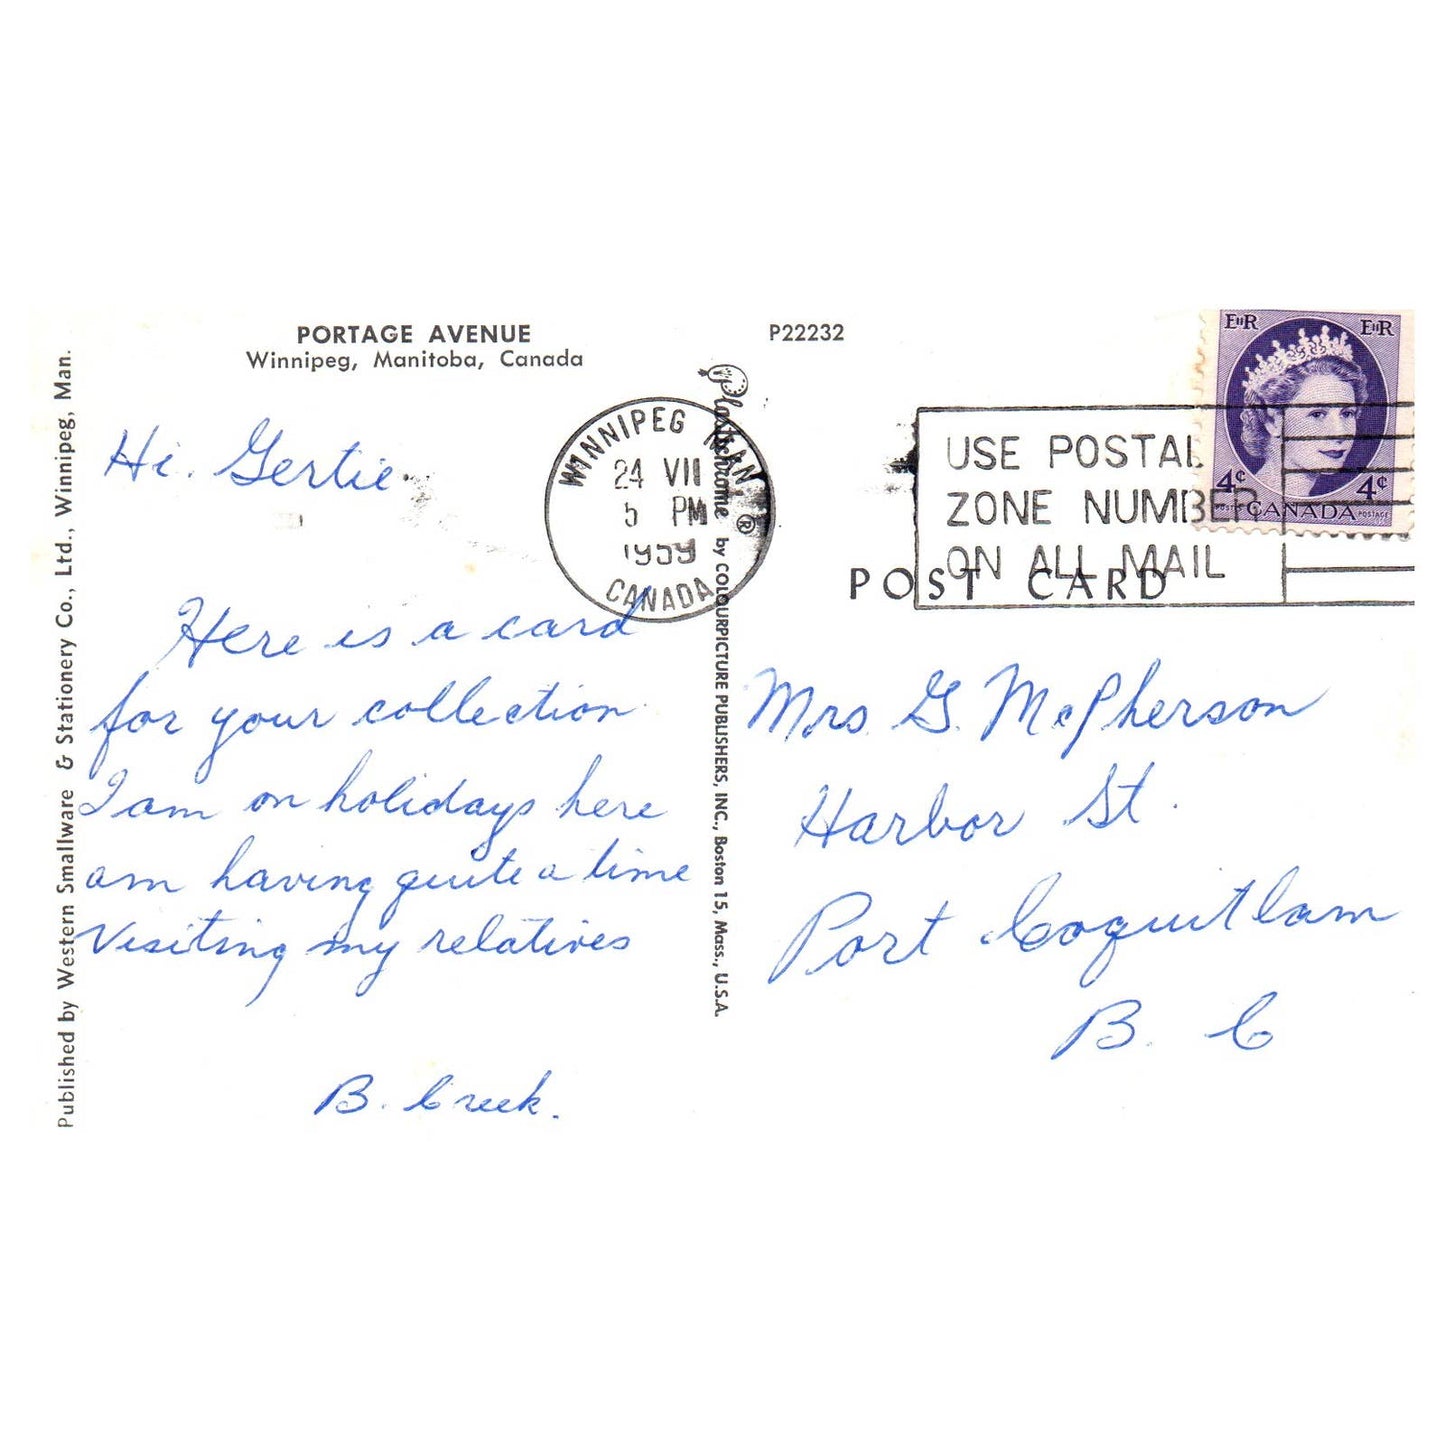 PORTAGE AVENUE
Winnipeg, Manitoba, Canada
P22232
Hi. Gertie.
Here is a card
for your collection
I am on holidays here
am having quite a time
Visiting my relatives
B. Creek.
Published by Western Smallware & Stationery Co., Ltd., Winnipeg, Man.
WINNIPEG MAN.
24 VII
5 PM
1959
CANADA
Plastichrome ® by COLOURPICTURE PUBLISHERS, INC., Boston 15, Mass., U.S.A.
USE POSTAL
ZONE NUMBER
ON ALL MAIL
EIIR EIIR
4¢ 4¢
POSTES CANADA POSTAGE
POST CARD
Mrs G. McPherson
Harbor St.
Port Coquitlam
B. C